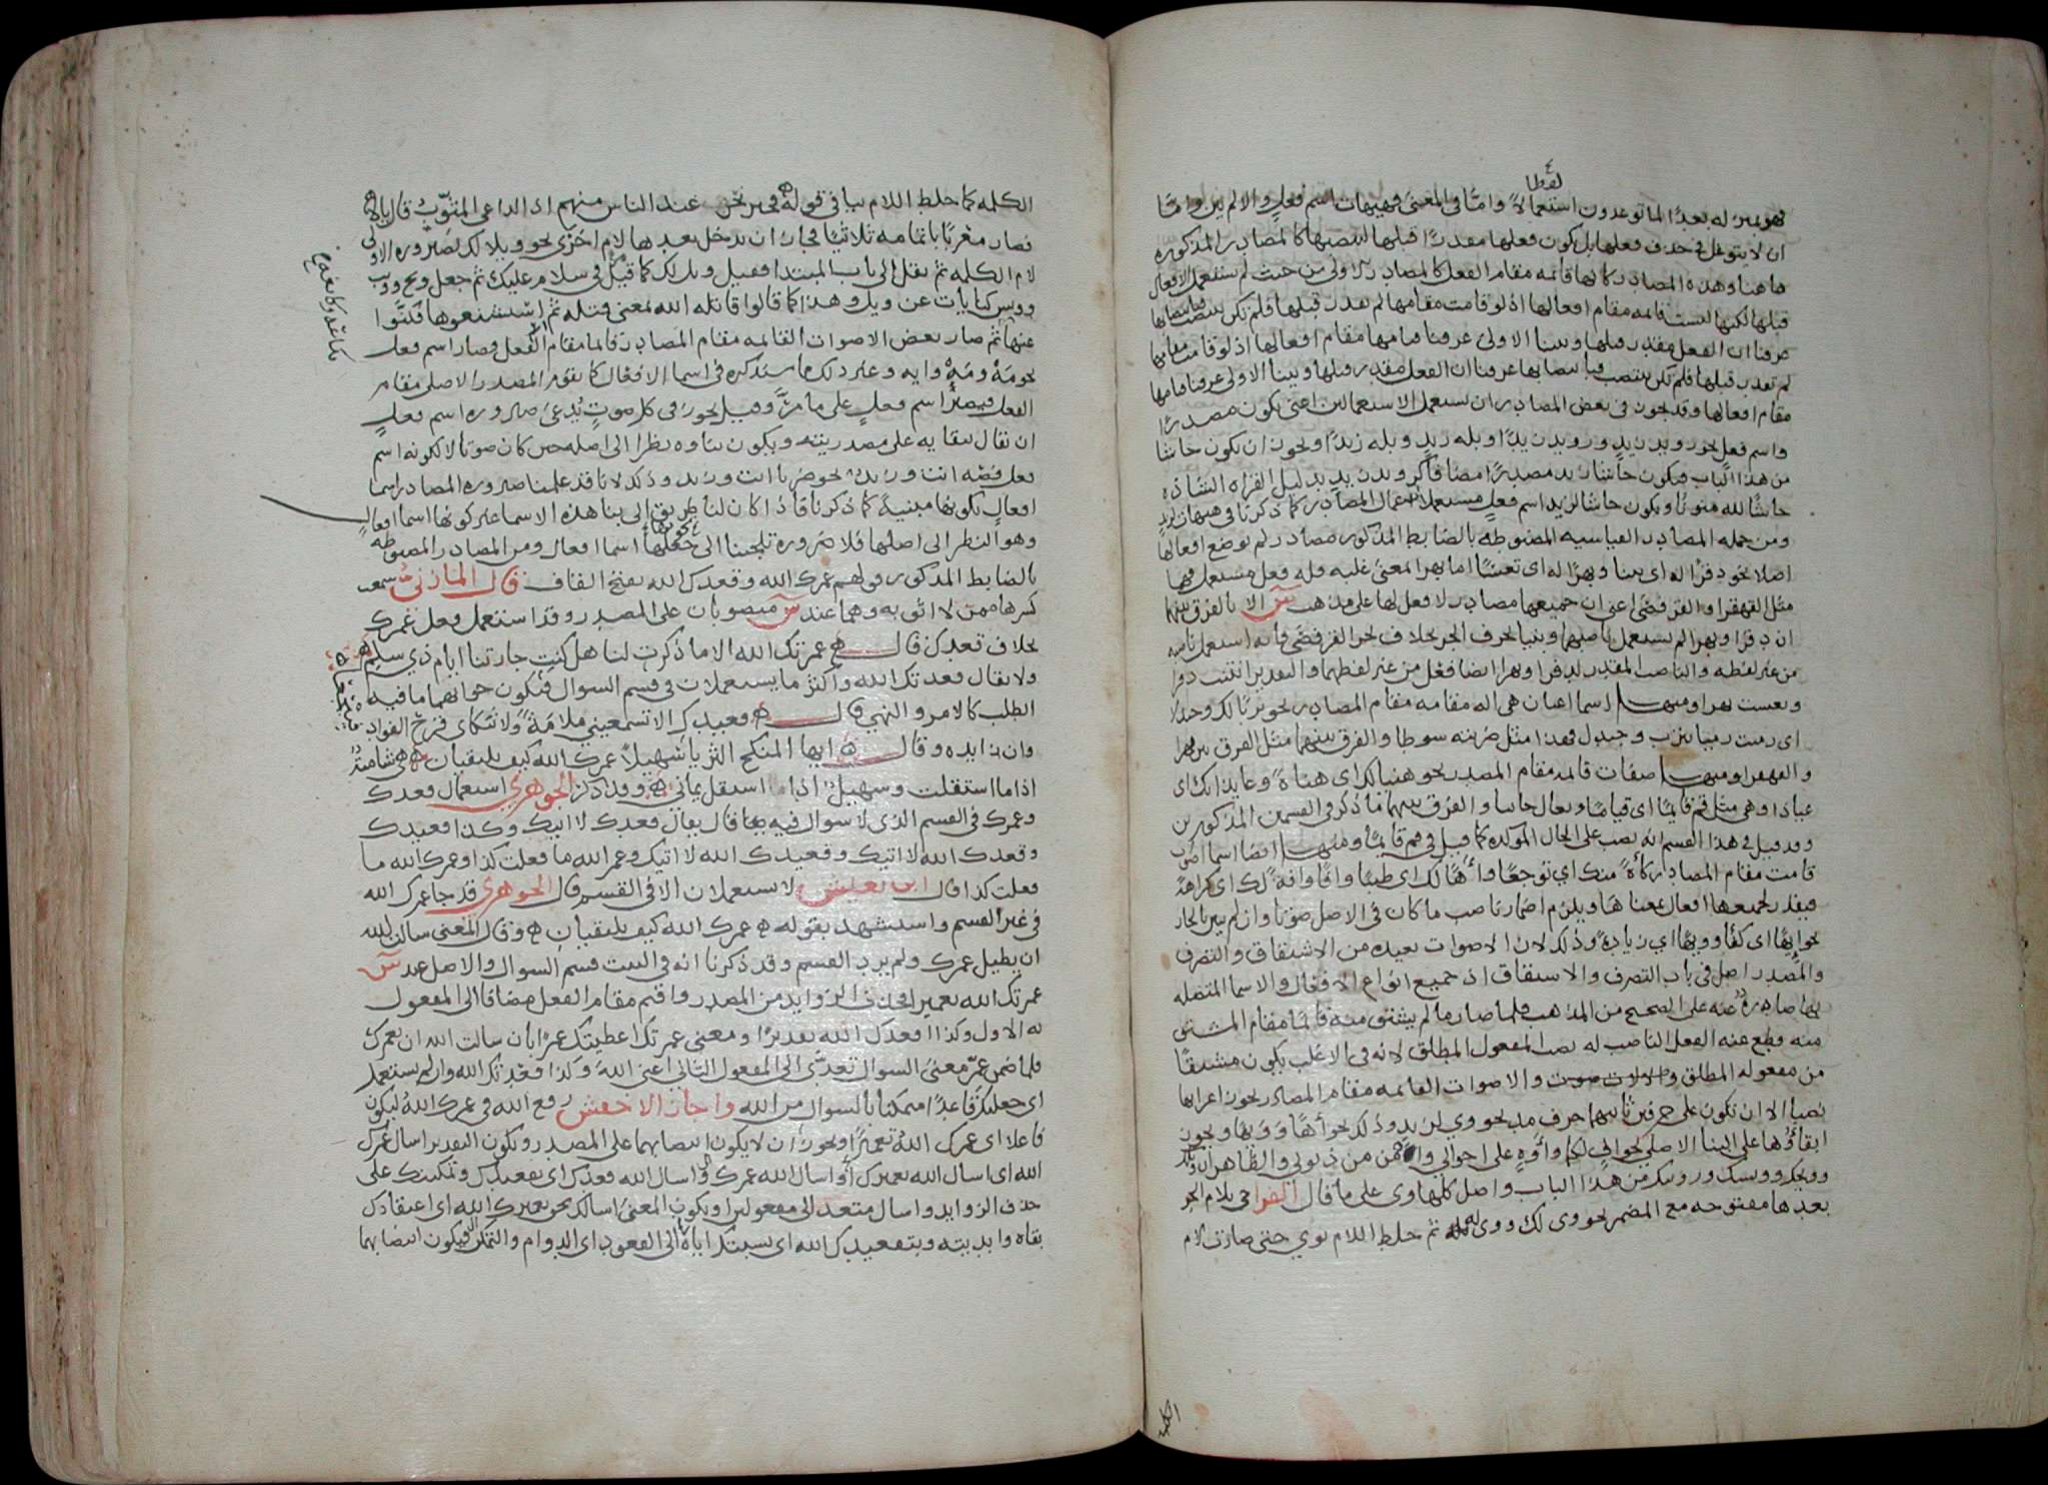 لفظا
فهو بمنزله بعدًا لما توعدون استعمالاً وامّا فى المعنى فهيهات اسم فعل والالم يبن وامّا
ان لا يتوغل فى حذف فعلها بل يكون فعلها مقدرًا قبلها لنصبها كالمصادر المذكوره
هاهنا وهذه المصادر كانها قائمه مقام الفعل كالمصادر الاولى من حيث لم يستعمل الافعال
قبلها لكنها ليست قائمه مقام افعالها اذ لو قامت مقامها لم تقدر قبلها فلم تكن تنتصب
عرفنا ان الفعل مقدر قبلها وبينا الاولى عرفنا قيامها مقام افعالها اذ لو قامت مقامها
لم تقدر قبلها فلم تكن تنتصب فبانتصابها عرفنا ان الفعل مقدر قبلها وببنا الاولى عرفنا قيامها
مقام افعالها وقد يجوز فى بعض المصادر ان تستعمل الاستعمالين اعنى يكون مصدرًا
واسم فعل نحو رويد زيدٍ ورويد زيدًا وبله زيدٍ وبله زيدًا ويجوز ان يكون حاشا
من هذا الباب فيكون حاشا زيد مصدرًا مضافا كرويد زيد بدليل القراه الشاذه
حاشًا لله منونًا ويكون حاشا لزيد اسم فعل مستعملا استعمال المصادر كما ذكرنا فى هيهات لزيد
ومن جمله المصادر القياسيه المضبوطه بالضابط المذكور مصادر لم توضع افعالها
اصلا نحو دفرًا له اى نتنا وبهرًا له اى تعسًا اما بهرا لمعنى غلبه فله فعل مستعمل
مثل القهقرا والقرفصى اعنى ان جميعها مصادر لا فعل لها على مذهب س الا بالفرق بينهما
ان دفرًا وبهرا لم يستعمل ناصبهما وبينا بحرف الجر بخلاف نحو القرفصى فانه استعمل ناصبه
من غير لفظه والناصب المقدر لدفرا وبهرا ايضا فعل من غير لفظهما والتقدير انتنت دفرا
وتعست بهرا ومنها اسما اعيان هى اله مقامه مقام المصادر نحو تربًا لك وجندلا
اى رميت رميا بترب وجندل فهذا مثل ضربته سوطا والفرق بينهما مثل الفرق بين بهرا
والقهقرا ومنها صفات قائمه مقام المصدر نحو هنيا لك اى هناةً وعايذا بك اى
عياذا وهى مثل قم قايمًا اى قيامًا وتعال جاسا والفرق بينهما ما ذكر فى القسمين المذكورين
وقد قيل فى هذا القسم انه نصب على الحال الموكده كما قيل فى قم قايمًا ومنها ايضا اسما اصوات
قامت مقام المصادر كأهً منك اى توجعًا وواهًا لك اى طيبًا وافًا وافةً لك اى كراهةً
فيقدر لجميعها افعال بمعناها ويلزم اضمار ناصب ما كان فى الاصل صوتا وان لم يبين بالجار
نحو ايهًا اى كفًا وويهًا اى زيادةً وذلك لان الاصوات بعيده من الاشتقاق والتصرف
والمصدر اصل فى باب التصرف والاشتقاق اذ جميع انواع الافعال والاسما المتصله
بها صادره عنه على الصحيح من المذاهب فلما صار ما لم يشتق منه قائمًا مقام المشتق
منه قطع عنه الفعل الناصب له نصب المفعول المطلق لانه فى الاغلب يكون مشتقًا
من مفعوله المطلق والاصوات القائمه مقام المصادر يجوز اعرابها
نصبا الا ان تكون على حرفين ثانيهما حرف مد نحو وي لزيد وذلك نحو أهًا وويهًا ويجوز
ابقاؤها على البنا الاصلى نحو اف لكما وأوهِ على اخوالى وآه من ذنوبى والظاهر ان ويك
وويحك وويسك وويبك من هذا الباب واصل كلها وى على ما قال الفرا جى بلام الجر
بعدها مفتوحه مع المضمر نحو وى لك ووى له ثم خلط اللام بوي حتى صارت لام
الكلمه
الكلمه كما خلط اللام بيا فى قوله ۵ فخير نحن عند الناس منهم اذا الداعى المثوّب قال يالا ۵
فصار مغربًا باتمامه ثلاثيًا فجاز ان يدخل بعدها لام اخرى نحو ويلا لك لصيروره الاولى
لام الكلمه ثم نقل الى باب المبتدا فقيل ويل لك كما قيل فى سلام عليك ثم جعل ويح وويب
وويس كنايات عن ويل وهذا كما قالوا قاتله الله بمعنى قتله ثم استشنعوها فكنّوا
عنها ثم صار بعض الاصوات القائمه مقام المصادر قائما مقام الفعل فصار اسم فعل
نحو صَهْ ومَهْ وايه وغير ذلك ما سنذكره فى اسما الافعال كما يقوم المصدر الاصلى مقام
الفعل فيصيرُ اسم فعلٍ على ما مرَّ وقيل يجوز فى كل صوتٍ يُدعى صيروره اسم فعلٍ
ان يقال ببقايه على مصدريته ويكون بناوه نظرا الى اصله حين كان صوتا لا لكونه اسم
فعل فصه انت وزيد نحو ضربا انت وزيد وذلك لانا قد علمنا صيروره المصادر اسما
افعالٍ بكونها مبنية كما ذكرنا فاذا كان لنا طريق الى بنا هذه الاسما غير كونها اسما افعالٍ
وهو النظر الى اصلها فلا ضروره تلجينا الى جعلها اسما افعال ومن المصادر المضبوطه
بالضابط المذكور قولهم عمرك الله وقعدك الله بفتح القاف قال المازنى سمعت
كسرها ممن لا اثق به وهما عند س منصوبان على المصدر وقد استعمل فعل عمرك
بخلاف قعدك قال ۵ عمرتك الله الا ما ذكرت لنا هل كنتِ جارتنا ايام ذي سلم ۵
ولا يقال قعدتك الله واكثر ما يستعملان فى قسم السوال فيكون جوابهما ما فيه
الطلب كالامر والنهي قال ۵ قعيدكِ الا تسمعيني ملامةً ولا تنكاى قرح الفواد
وان زايده وقال ۵ ايها المنكح الثريا سُهيلاً عمرك الله كيف يلتقيان ۵ هى شاميَّةٌ
اذا ما استقلت وسهيلٌ اذا استقل يمانى ۵ وقد ذكر الجوهري استعمال قعدك
وعمرك فى القسم الذى لا سوال فيه قال يقال قعدك لا اتيك وكذا قعيدك
وقعدك الله لا اتيك وقعيدك الله لا اتيك وعمر الله ما فعلت كذا وعمرك الله ما
فعلت كذا قال ابن يعيش لا يستعملان الا فى القسم قال الجوهرى قد جا عمرك الله
فى غير القسم واستشهد بقوله ۵ عمرك الله كيف يلتقيان ۵ وقال المعنى سالت الله
ان يطيل عمرك ولم يرد القسم وقد ذكرنا انه فى البيت قسم السوال والاصل عند س
عمرتك الله تعميرا فحذف الزوايد من المصدر واقيم مقام الفعل مضافا الى المفعول
به الاول وكذا قعدك الله تقديرًا ومعنى عمرتك اعطيتك عمرًا بان سالت الله ان يعمرك
فلما ضمن عمّر معنى السوال تعدّى الى المفعول الثانى اعنى اللهَ وكذا قعّدتك الله وان لم يستعمل
اى جعلتك قاعدًا متمكنا بالسوال من الله واجاز الاخفش رفع الله فى عمرك اللهُ ليكون
فاعلا اى عمرك اللهُ تعميرًا ويجوز ان لا يكون انتصابهما على المصدر ويكون التقدير اسال عمرك
الله اى اسال الله تعميرك او اسال الله عمرك واسال الله قعدك اى تقعيدك وتمكينك على
حذف الزوايد واسال متعد الى مفعولين او يكون المعنى اسالك بحق تعميرك الله اى اعتقادك
بقاه وابديته وبتقعيدك الله اى نسبتك اياه الى القعود اى الدوام والتمكن فيكون انتصابهما